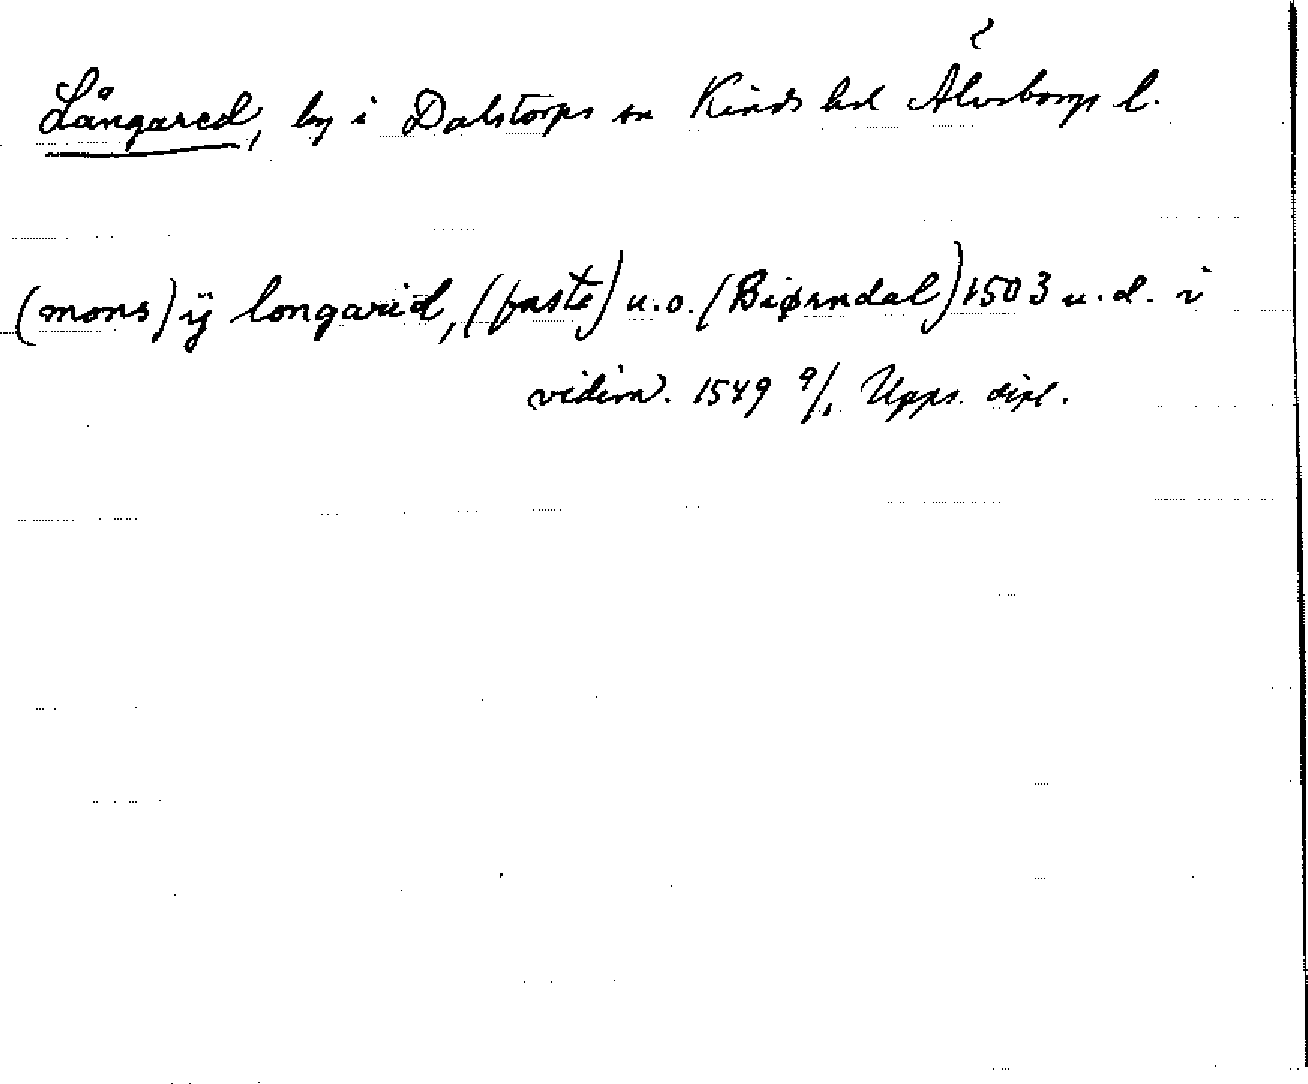 Långared, by i Dalstorps sn Kinds hd Älvsborgs l.
(mons) ÿ longarid, (faste) u.o. (Biørndal) 1503 u.d. i
vidim. 1549 9/1 Upps. dipl.